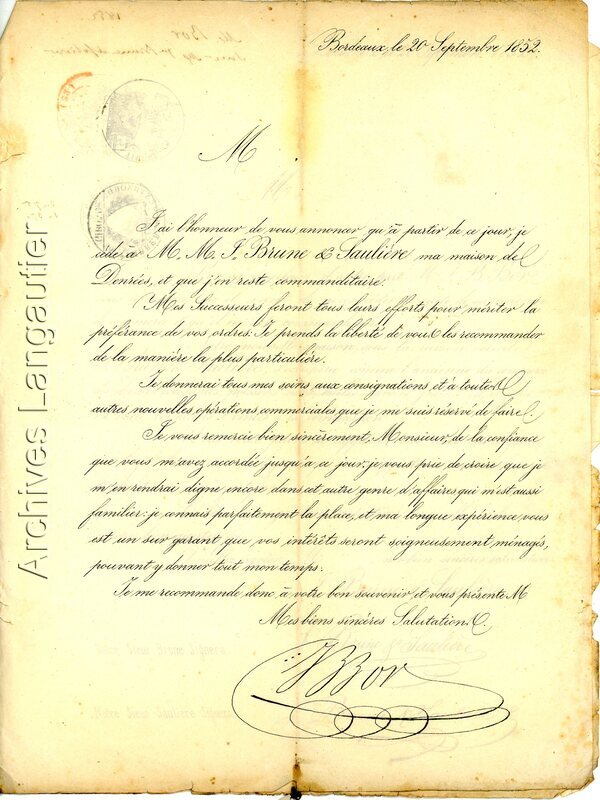 Bordeaux, le 20 Septembre 1852.
M
J'ai l'honneur de vous annoncer qu'à partir de ce jour, je
cède à M. M. J. Brune & Saulière ma maison de
Denrées, et que j'en reste commanditaire.
Mes Successeurs feront tous leurs efforts pour mériter la
préférance de vos ordres: Je prends la liberté de vous les recommander
de la manière la plus particulière.
Je donnerai tous mes soins aux consignations, et à toute
autres nouvelles opérations commerciales que je me suis réservé de faire.
Je vous remercie bien sincèrement, Monsieur, de la confiance
que vous m'avez accordée jusqu'à ce jour, je vous prie de croire que je
m'en rendrai digne encore dans cet autre genre d'affaires qui m'est aussi
familier: je connais parfaitement la place, et ma longue expérience vous
est un sur garant que vos intérêts seront soigneusement ménagés,
pouvant y donner tout mon temps.
Je me recommande donc à votre bon souvenir et vous présente M
Mes biens sincères Salutation.
JBor
Notre Sieur Brune Signera:
Notre Sieur Saulière Signera:
Archives Langautier